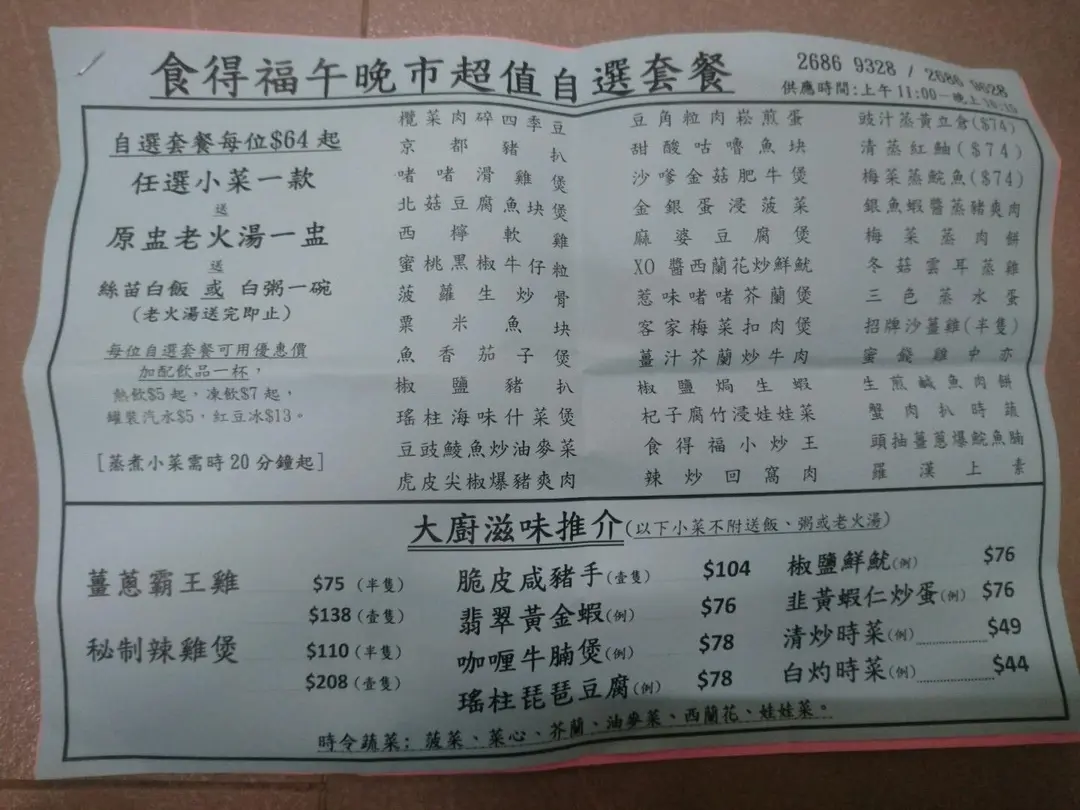 食得福午晚市超值自選套餐
2686 9328 / 2686 9628
供應時間:上午11:00－晚上10:15
自選套餐每位$64起
任選小菜一款
送
原盅老火湯一盅
送
絲苗白飯 或 白粥一碗
(老火湯送完即止)
每位自選套餐可用優惠價
加配飲品一杯，
熱飲$5起，凍飲$7起，
罐裝汽水$5，紅豆冰$13。
[蒸煮小菜需時20分鐘起]
欖菜肉碎四季豆
京都豬扒
啫啫滑雞煲
北菇豆腐魚塊煲
西檸軟雞
蜜桃黑椒牛仔粒
菠蘿生炒骨
粟米魚塊
魚香茄子煲
椒鹽豬扒
瑤柱海味什菜煲
豆豉鯪魚炒油麥菜
虎皮尖椒爆豬爽肉
豆角粒肉崧煎蛋
甜酸咕嚕魚塊
沙嗲金菇肥牛煲
金銀蛋浸菠菜
麻婆豆腐煲
XO醬西蘭花炒鮮魷
惹味啫啫芥蘭煲
客家梅菜扣肉煲
薑汁芥蘭炒牛肉
椒鹽焗生蝦
杞子腐竹浸娃娃菜
食得福小炒王
辣炒回窩肉
豉汁蒸黃立倉($74)
清蒸紅鮋($74)
梅菜蒸鯇魚($74)
銀魚蝦醬蒸豬爽肉
梅菜蒸肉餅
冬菇雲耳蒸雞
三色蒸水蛋
招牌沙薑雞(半隻)
蜜餞雞中亦
生煎鹹魚肉餅
蟹肉扒時蔬
頭抽薑蔥爆鯇魚腩
羅漢上素
大廚滋味推介(以下小菜不附送飯、粥或老火湯)
薑蔥霸王雞 $75 (半隻)
$138 (壹隻)
秘制辣雞煲 $110 (半隻)
$208 (壹隻)
脆皮咸豬手(壹隻) $104
翡翠黃金蝦(例) $76
咖喱牛腩煲(例) $78
瑤柱琵琶豆腐(例) $78
椒鹽鮮魷(例) $76
韭黃蝦仁炒蛋(例) $76
清炒時菜(例)............$49
白灼時菜(例)............$44
時令蔬菜：菠菜、菜心、芥蘭、油麥菜、西蘭花、娃娃菜。